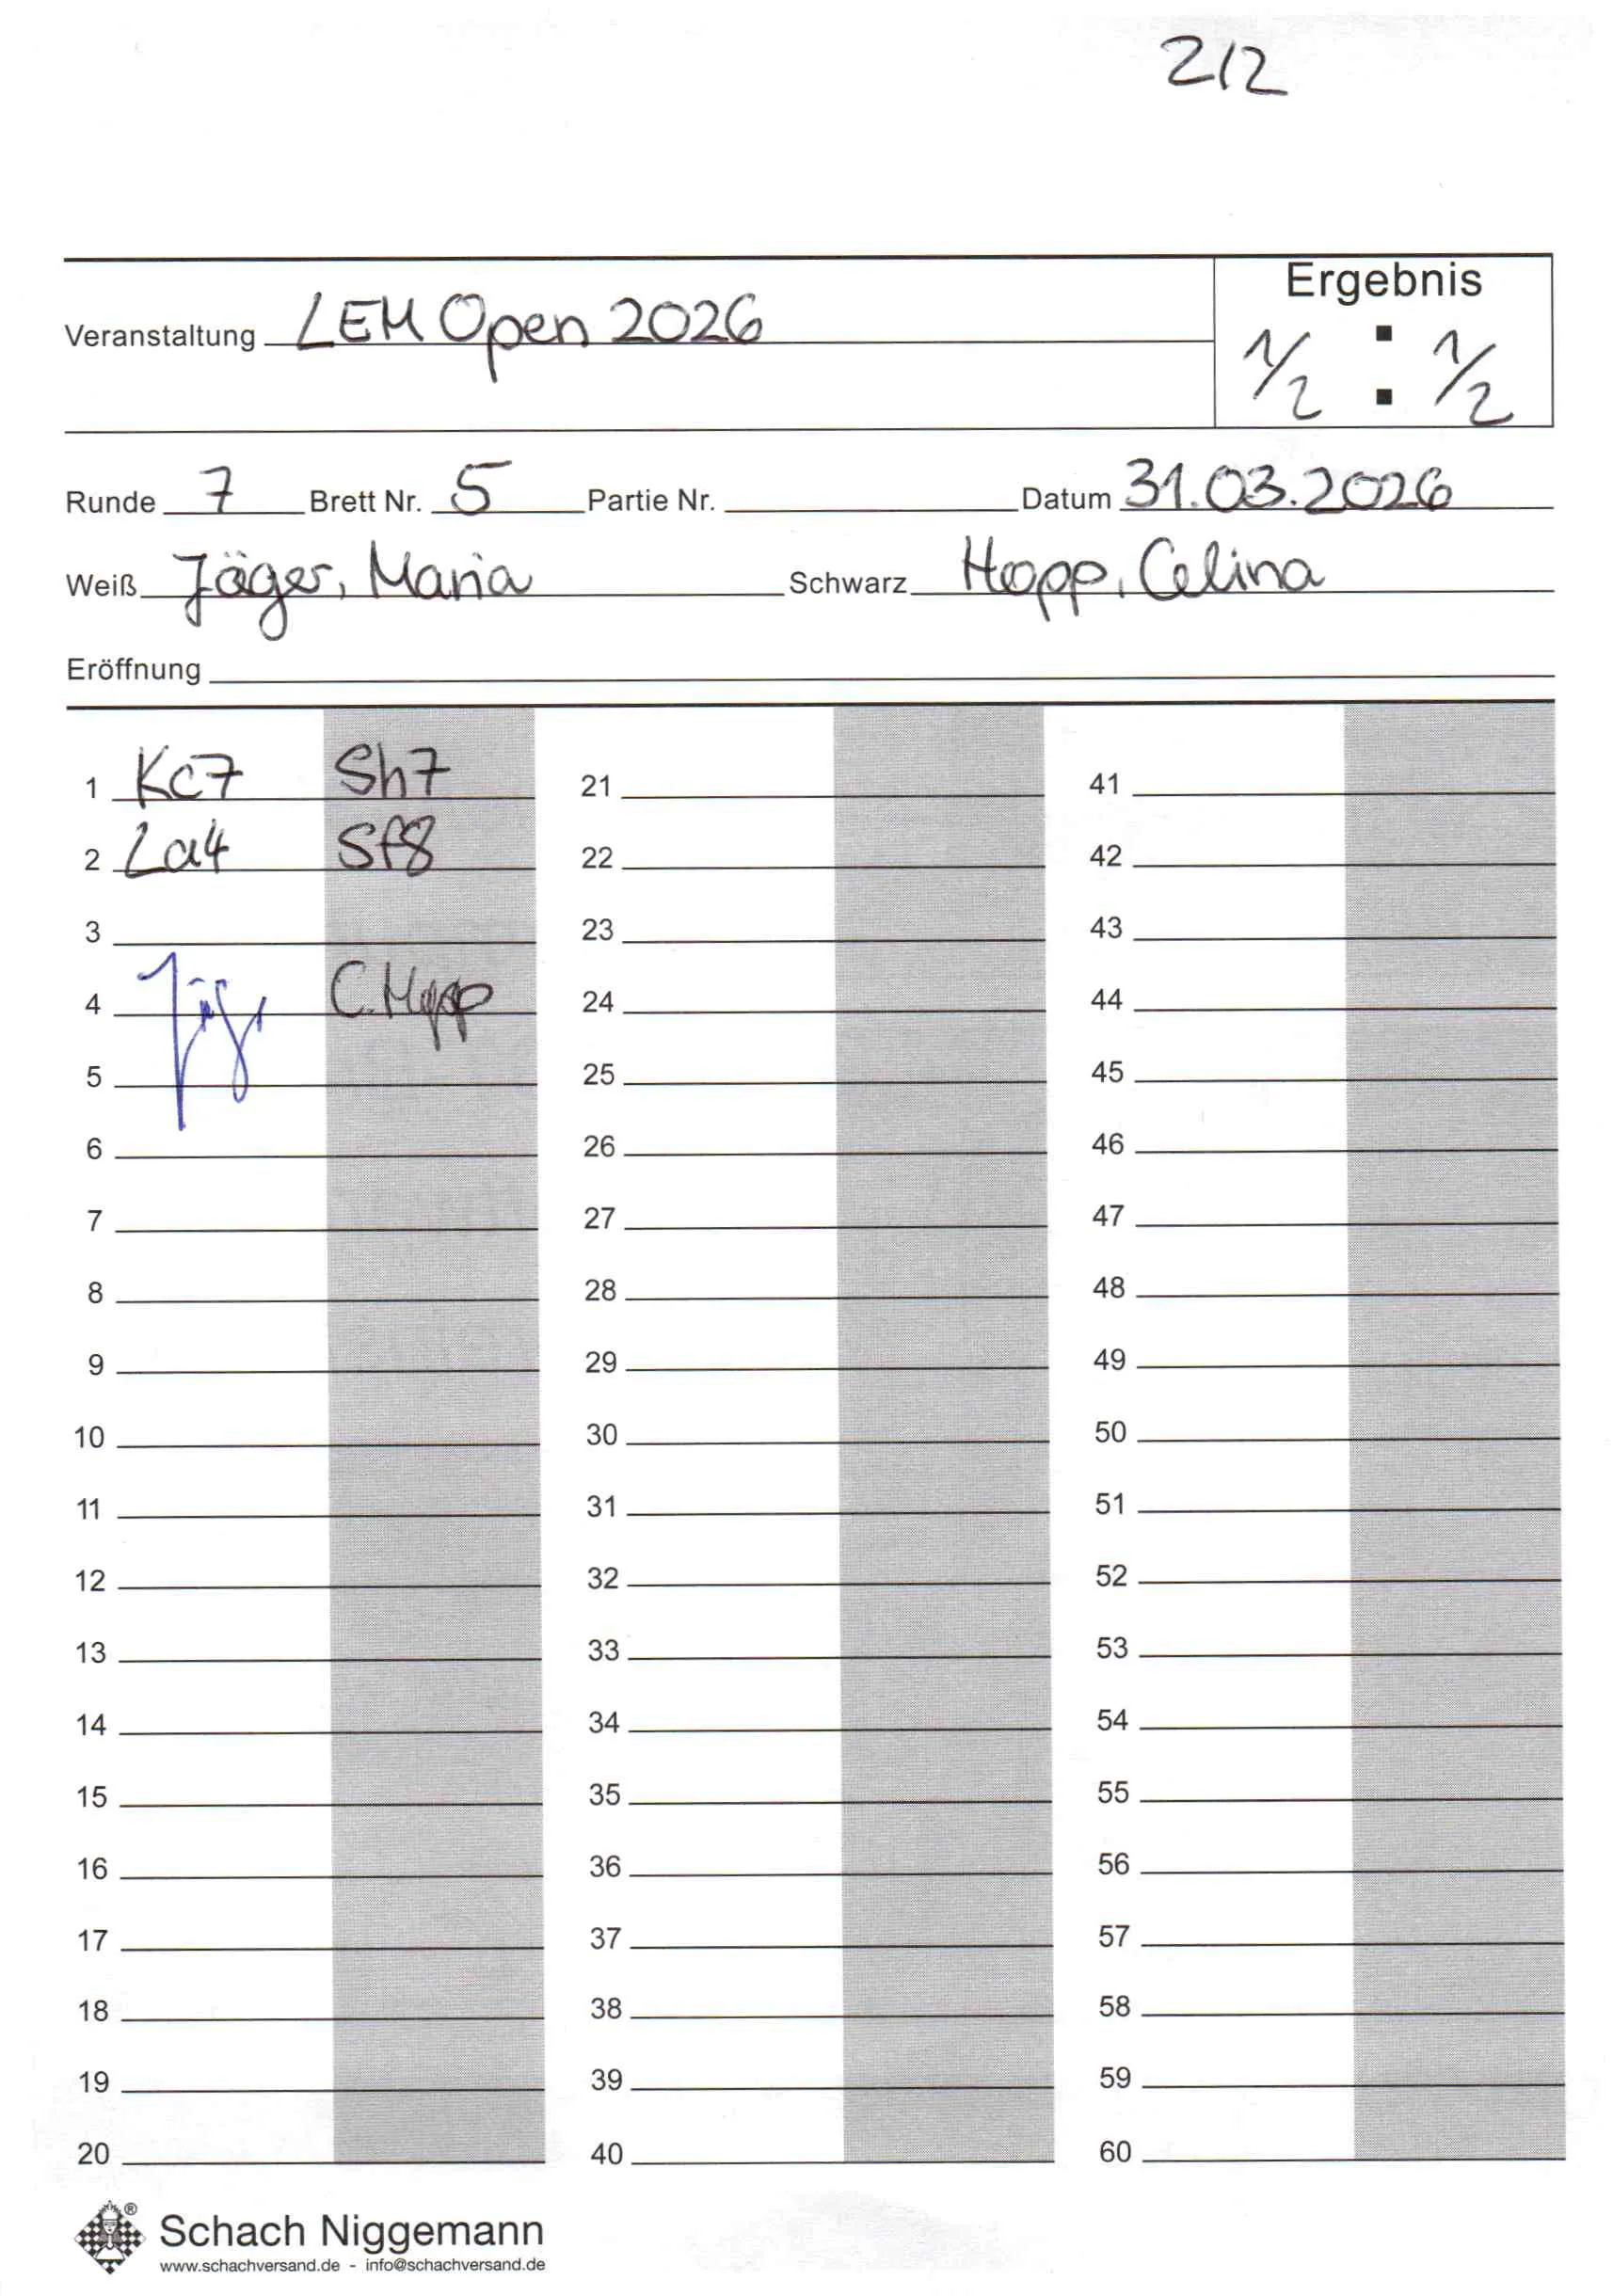 2/2
Ergebnis
Veranstaltung LEM Open 2026
1/2 : 1/2
Runde 7 Brett Nr. 5 Partie Nr. Datum 31.03.2026
Weiß Jäger, Maria Schwarz Hopp, Celina
Eröffnung
1 Kc7 Sh7 21 41
2 La4 Sf8 22 42
3 23 43
4 Jäger C. Hopp 24 44
5 25 45
6 26 46
7 27 47
8 28 48
9 29 49
10 30 50
11 31 51
12 32 52
13 33 53
14 34 54
15 35 55
16 36 56
17 37 57
18 38 58
19 39 59
20 40 60
Schach Niggemann ®
www.schachversand.de - info@schachversand.de